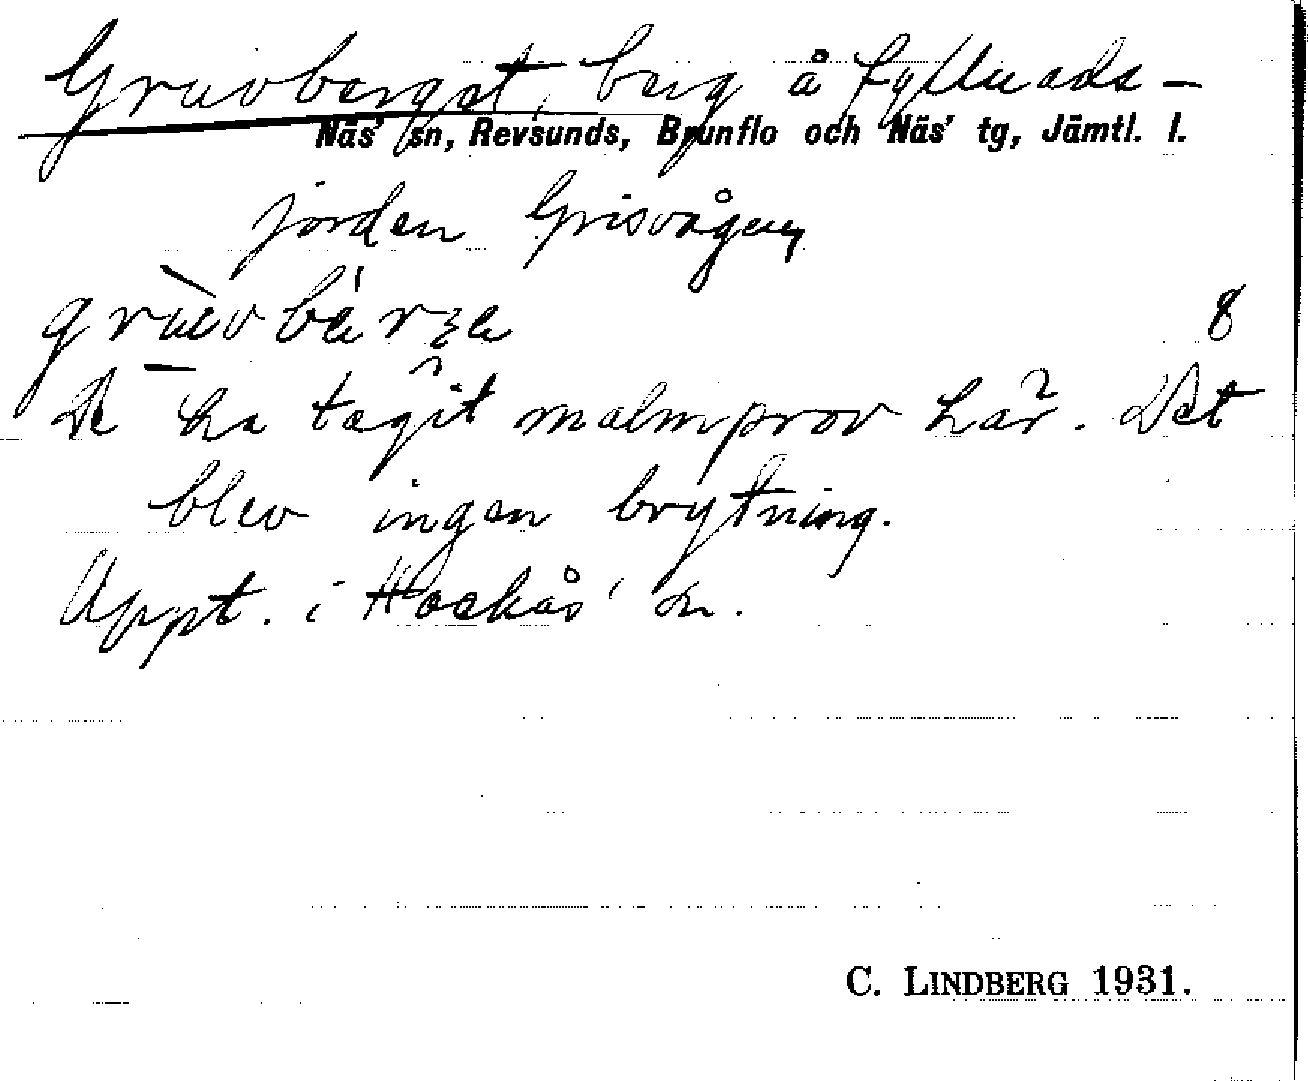 Gruvberget, berg å fyllnads-
Näs' sn, Revsunds, Brunflo och Näs' tg, Jämtl. l.
jorden Grisvågen
8
De ha tagit malmprov här. Det
blev ingen brytning.
Uppt. i Hackås' sn.
C. LINDBERG 1931.